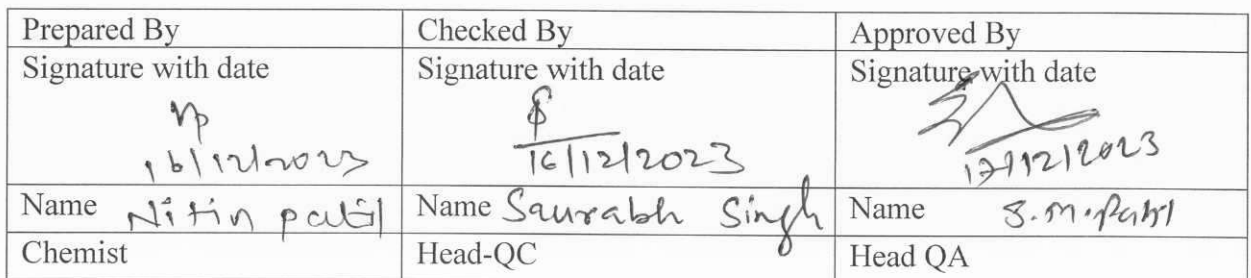 Prepared By Checked By Approved By
Signature with date Signature with date Signature with date
16/12/2023 16/12/2023 17/12/2023
Name Nitin patil Name Saurabh Singh Name S.M.Patil
Chemist Head-QC Head QA